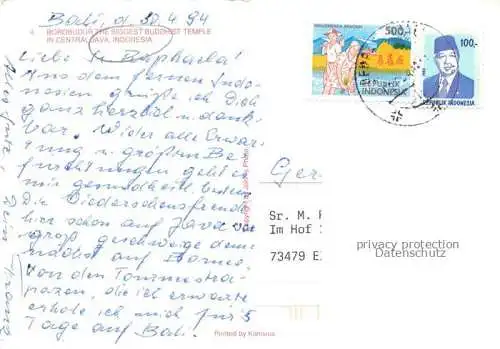 Bali, d. 30.4.94
4 BOROBUDUR THE BIGGEST BUDDHIST TEMPLE
IN CENTRAL JAVA, INDONESIA
Liebe Sr. Raphaela!
Aus dem fernen Indo-
nesien grüße ich Dich
ganz herzlich und dank-
bar. Wider alle Erwar-
tung u. größten Be-
fürchtungen geht es
mir gesundheitl. bestens
Die Wiedersehensfreude
hier schon auf Java war
groß, geschweige denn
nächst auf Borneo.
Von den Tommestra-
pazen, die ich erwarte
erhole ich mich für 5
Tage auf Bali.
Alles Gute, Deine
500,-
REPUBLIK
INDONESIA
100,-
REPUBLIK INDONESIA
Ger
Sr. M. F
Im Hof
73479 E
privacy protection
Datenschutz
Printed by Kanisius